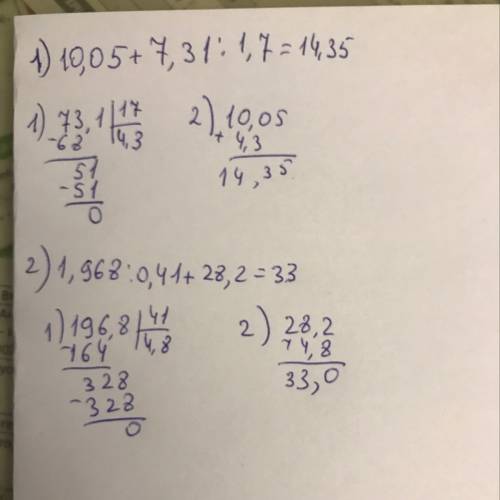 1) 10,05 + 7,31 : 1,7 = 14,35
1) 73,1 | 17
- 68 4,3
51
- 51
0
2) 10,05
+ 4,3
14,35
2) 1,968 : 0,41 + 28,2 = 33
1) 196,8 | 41
- 164 4,8
328
- 328
0
2) 28,2
+ 4,8
33,0